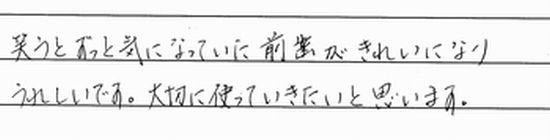 笑うとずっと気になっていた前歯がきれいになり
うれしいです。大切に使っていきたいと思います。